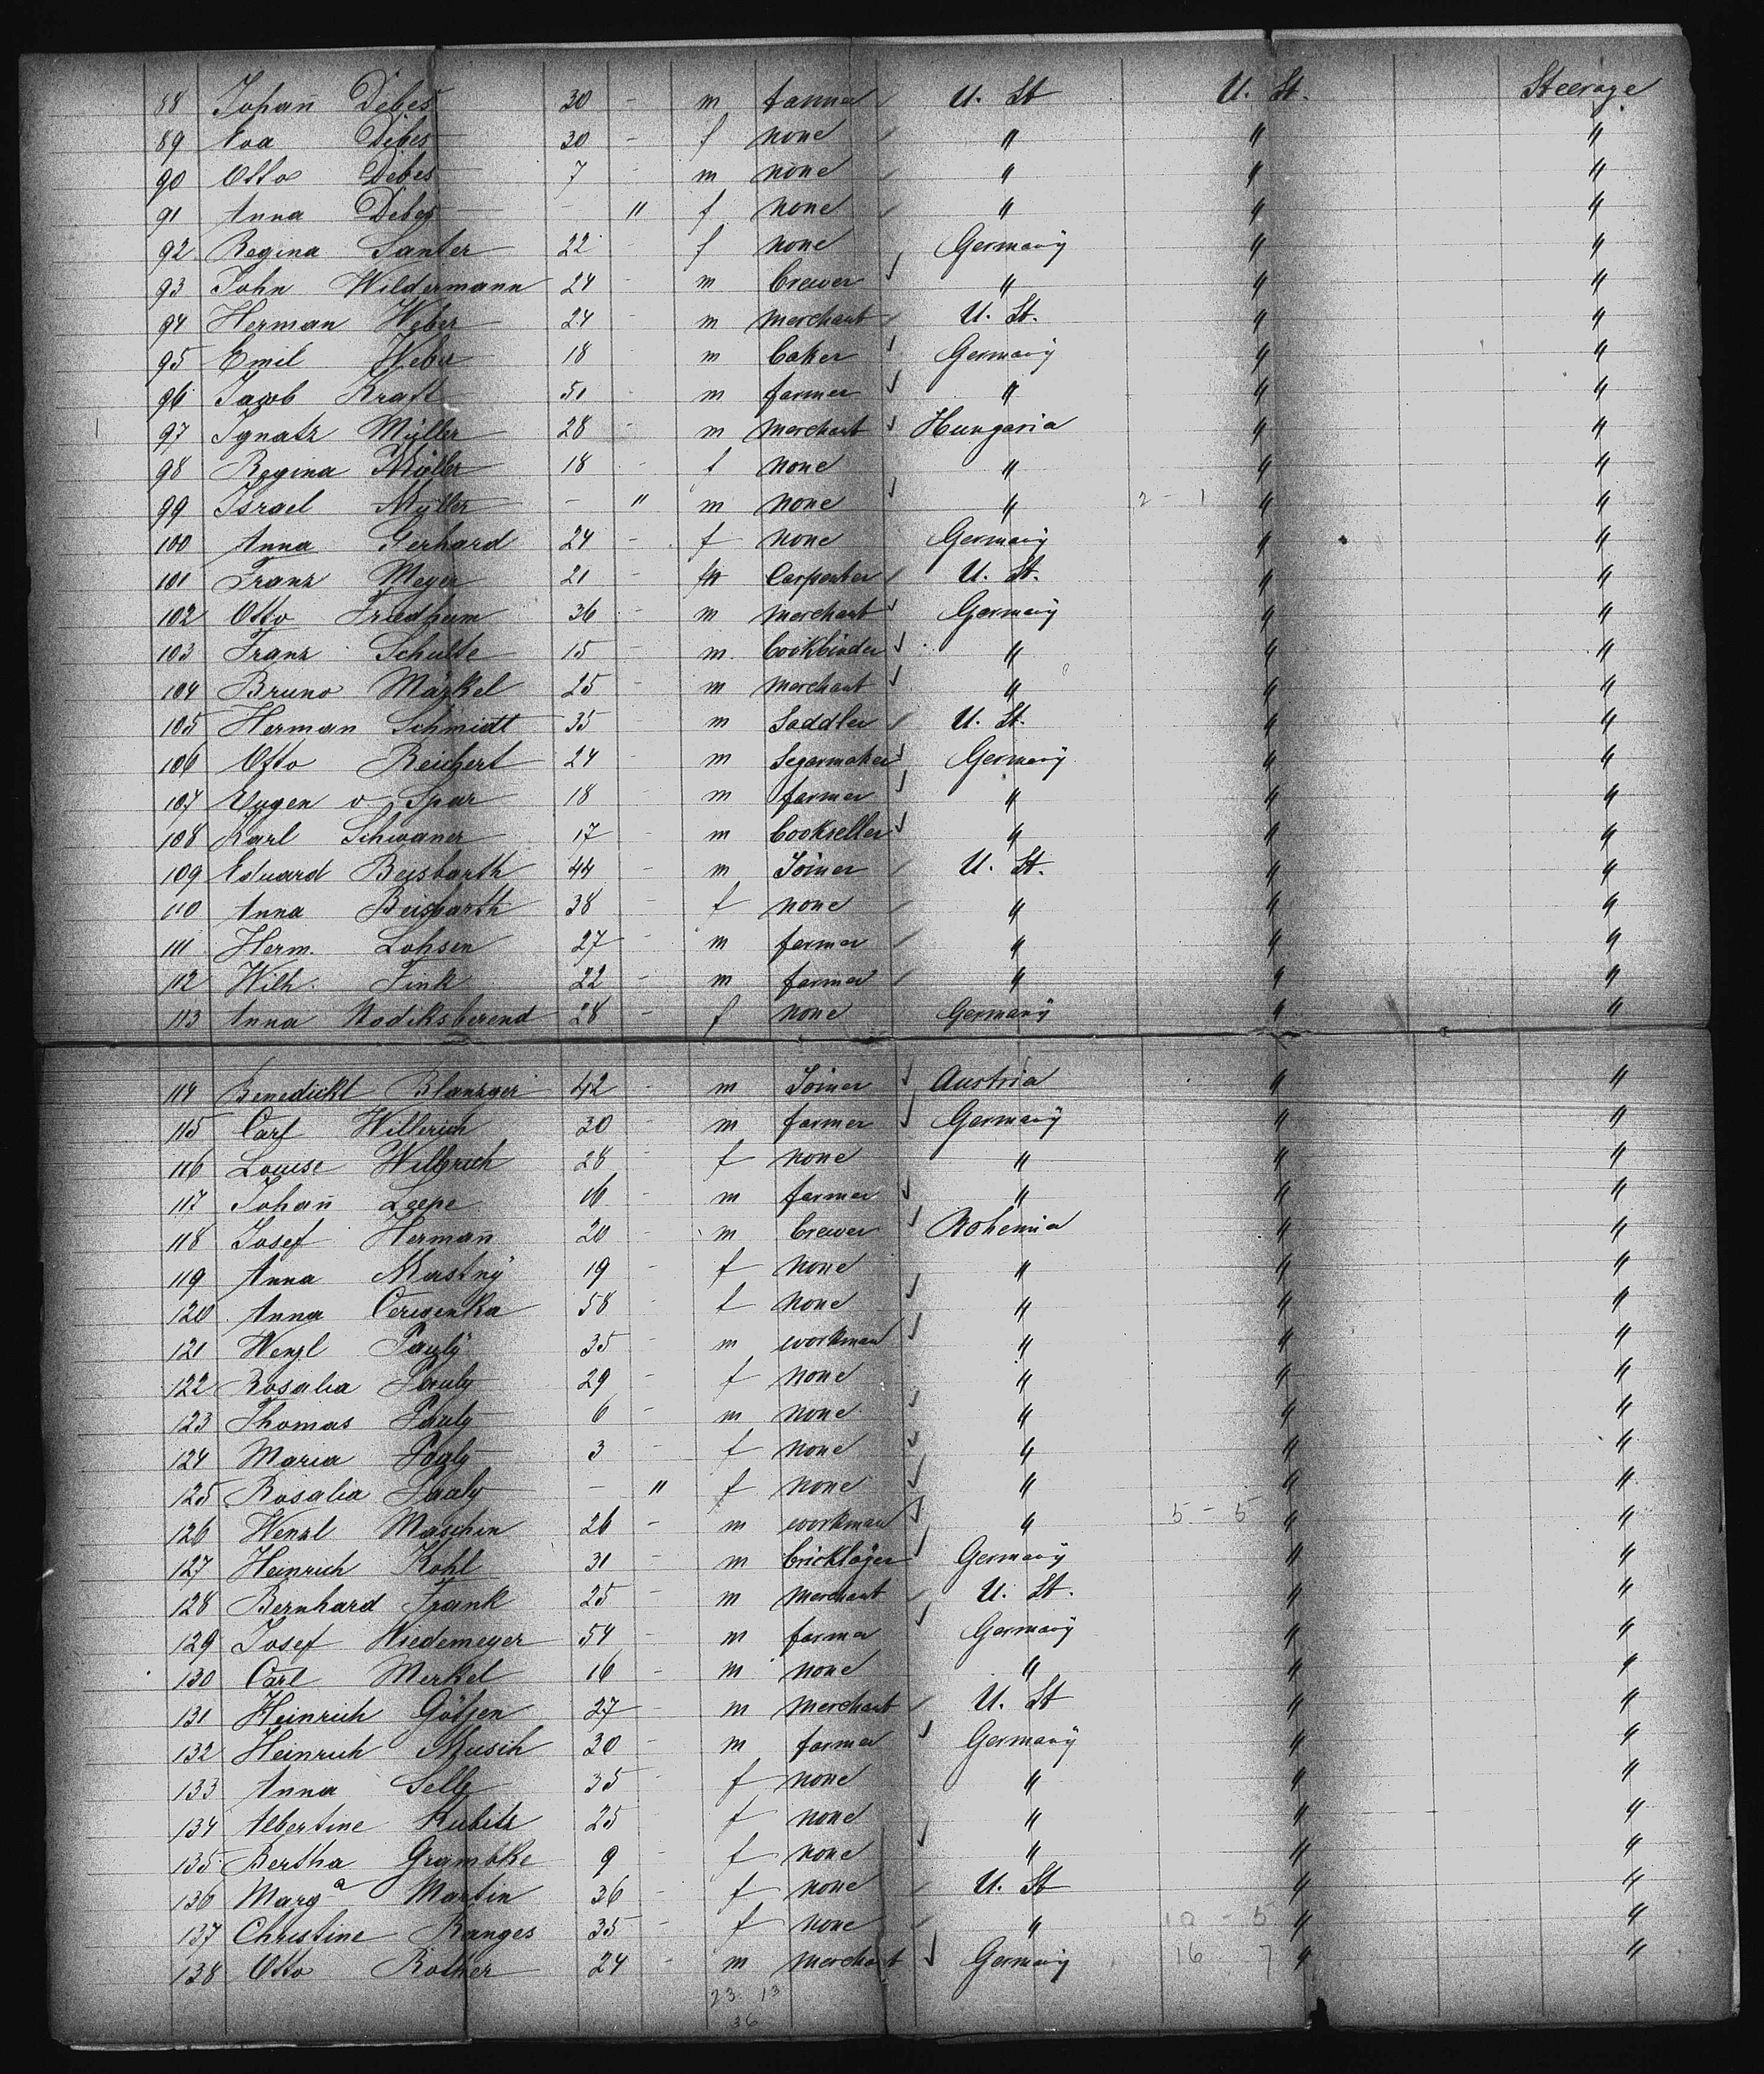 88 Johañ Debes 30 - m farmer U. St U. St. Steerage
89 Eva Debes 30 - f none " " "
90 Otto Debes 7 - m none " " "
91 Anna Debes - " f none " " "
92 Regina Santer 22 f none Germany " "
93 John Wildermann 24 - m brewer " " "
94 Herman Weber 24 - m merchant U. St. " "
95 Emil Weber 18 - m baker Germany " "
96 Jacob Kraft 51 - m farmer " " "
97 Ignatz Müller 28 - m merchant Hungaria " "
98 Regina Müller 18 - f none " " "
99 Israel Müller - " m none " 2 - 1 " "
100 Anna Gerhard 24 - f none Germany " "
101 Franz Meyer 21 - m Carpenter U. St. " "
102 Otto Friedheim 36 - m merchant Germany " "
103 Franz Schulte 15 - m bookbinder " " "
104 Bruno Märkel 25 - m merchant " " "
105 Herman Schmidt 35 m Saddler U. St. " "
106 Otto Reichert 24 - m Segarmaker Germany " "
107 Eugen v Spar 18 - m farmer " " "
108 Karl Schwaner 17 - m bookseller " " "
109 Eduard Beisbarth 44 - m Joiner U. St. " "
110 Anna Beisbarth 38 - f none " " "
111 Herm. Lohsen 27 - m farmer " " "
112 Wilh. Fink 22 - m farmer " " "
113 Anna 28 - f none Germany " "
114 Benedickt 42 - m Joiner Austria " "
115 Carl Willerich 30 - m farmer Germany " "
116 Louise Willerich 28 - f none " " "
117 Johañ Leepe 16 - m farmer " " "
118 Josef Hermañ 20 - m brewer Bohemia " "
119 Anna Mastny 19 - f none " " "
120 Anna Cerwenka 58 - f none " " "
121 Wenzl Pauly 35 - m workman " " "
122 Rosalia Pauly 29 - f none " " "
123 Thomas Pauly 6 - m none " " "
124 Maria Pauly 3 - f none " " "
125 Rosalia Pauly - " f none " " "
126 Wenzl Maschin 26 - m workman " 5 - 5 " "
127 Heinrich Kohl 31 - m bricklayer Germany " "
128 Bernhard Frank 25 - m merchant U. St. " "
129 Josef Wiedemeyer 54 - m farmer Germany " "
130 Carl Merkel 16 - m none " " "
131 Heinrich Götjen 27 - m merchant U. St " "
132 Heinrich Musch 30 - m farmer Germany " "
133 Anna Selle 35 - f none " " "
134 Albertine Kubitz 25 - f none " " "
135 Bertha Grambke 9 - f none " " "
136 Marga Martin 36 - f none U. St " "
137 Christine Ranges 35 - f none " 10 - 5 " "
138 Otto Rother 24 - m merchant Germany 16 7 " "
23 13
36